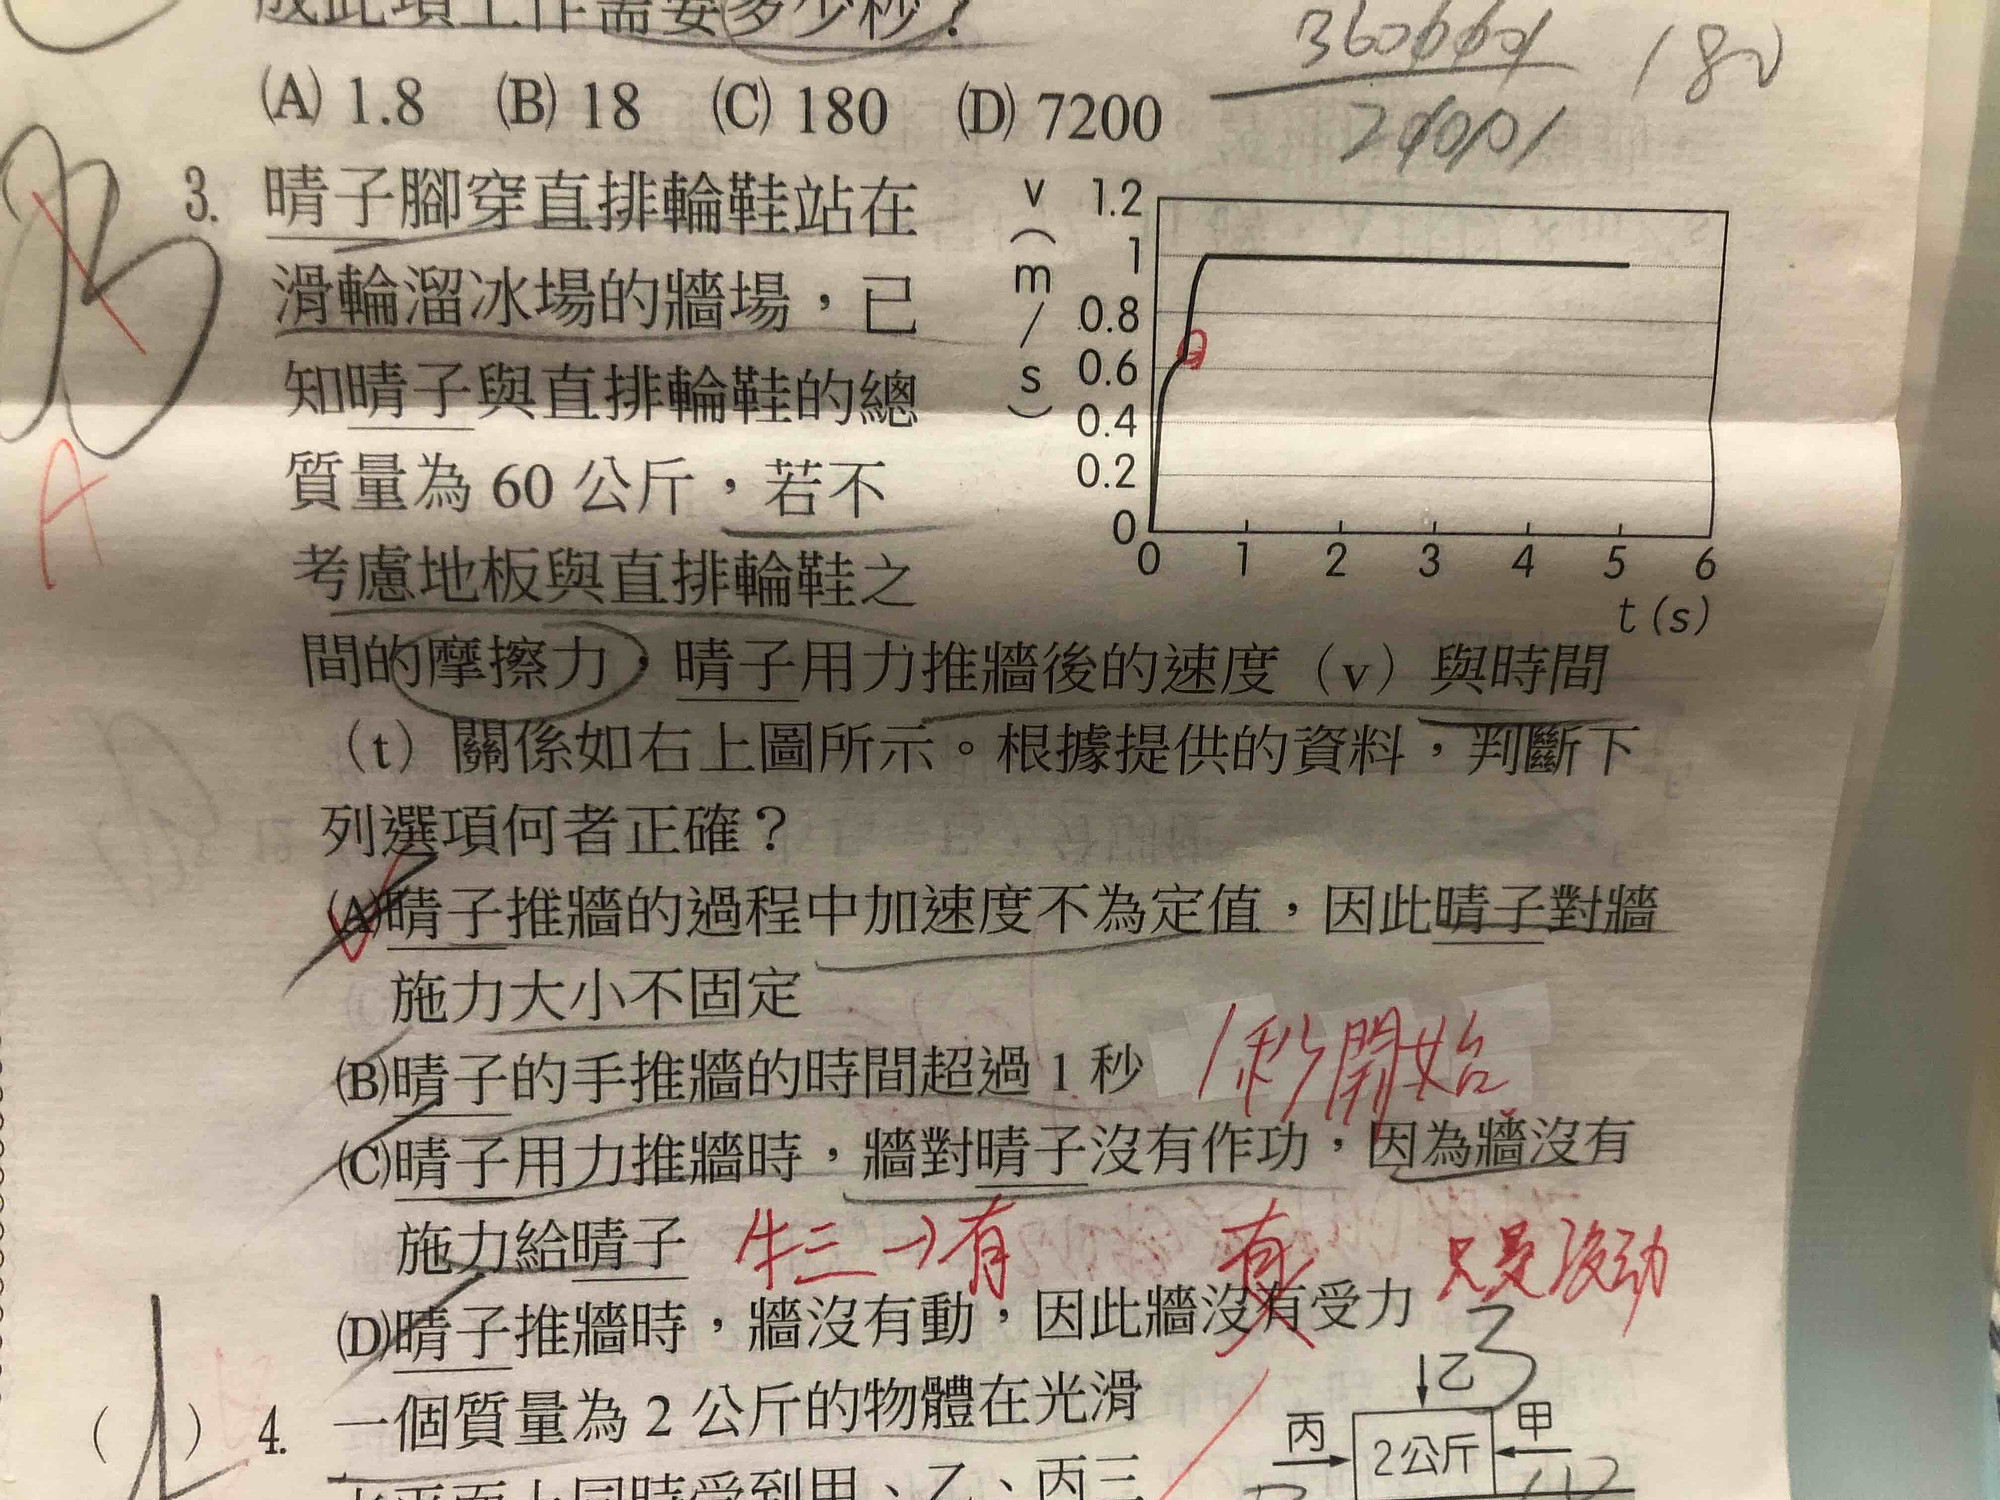 成此項工作需要多少秒？
(A) 1.8 (B) 18 (C) 180 (D) 7200
180
3. 晴子腳穿直排輪鞋站在
滑輪溜冰場的牆場，已
知晴子與直排輪鞋的總
質量為 60 公斤，若不
考慮地板與直排輪鞋之
v（m/s）
1.2
1
0.8
0.6
0.4
0.2
0
0 1 2 3 4 5 6
t (s)
B
A
間的摩擦力，晴子用力推牆後的速度（v）與時間
（t）關係如右上圖所示。根據提供的資料，判斷下
列選項何者正確？
(A)晴子推牆的過程中加速度不為定值，因此晴子對牆
施力大小不固定
(B)晴子的手推牆的時間超過 1 秒 1秒開始
(C)晴子用力推牆時，牆對晴子沒有作功，因為牆沒有
施力給晴子 牛三→有 有 只是沒动
(D)晴子推牆時，牆沒有動，因此牆沒有受力 了
( ) 4. 一個質量為 2 公斤的物體在光滑
水平面上同時受到甲、乙、丙三
乙
丙
甲
2公斤